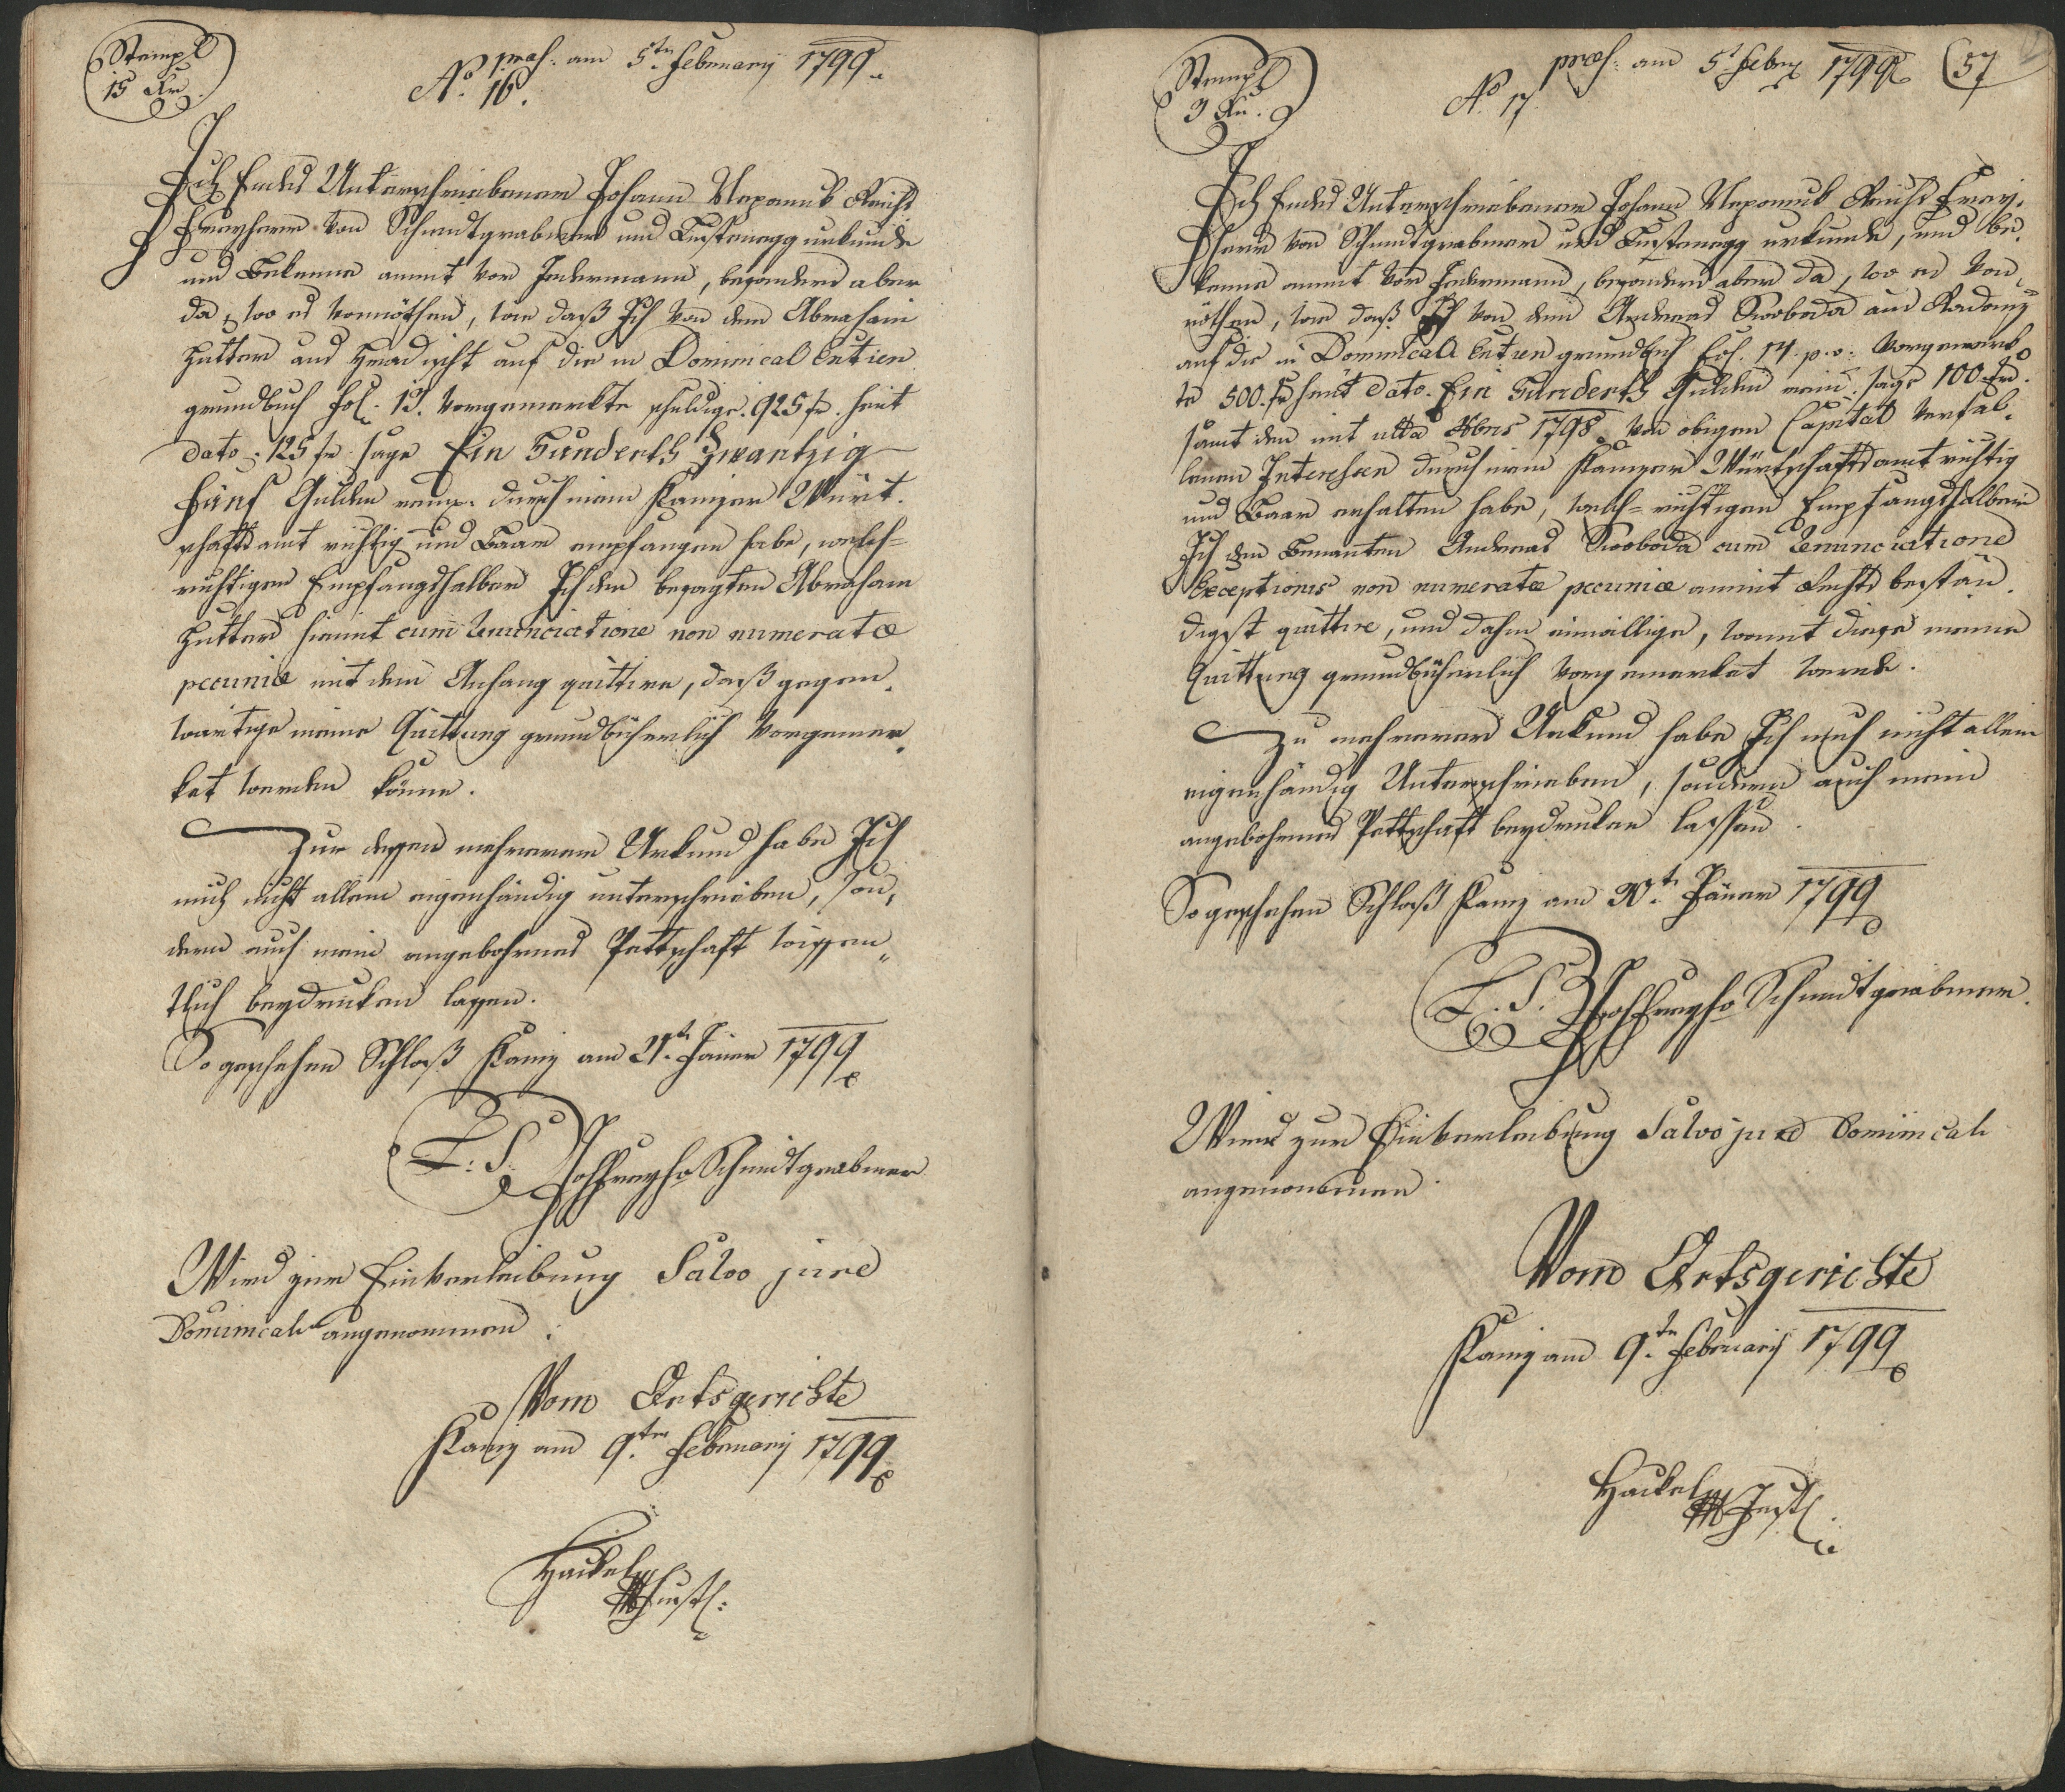 Stempl
15 Kr.
præs: am 5tn Februarij 1799.
No. 16.
Ich Endes Unterschriebener Johann Nepomuk Reichs
Freyherr von Schmidtgrabner und Lustenegg urkunde
und Bekenne anmit vor Jedermann, besonders aber
da, wo es vonnöthen, wie daß Ich von dem Abraham
Hutter aus auf die in Dominical Entien
grundbuch Fol. 13. Vorgemerkte schuldige. 925 f. heut
dato. 125 f. sage Ein Hunderth Zwantzig
Fünf Gulden rein. durch mein Kanizer Würt.
schaftsamt richtig und Baar empfangen habe, welch=
richtigen Empfangshalber Ich den besagten Abraham
Hutter hiemit cum renunciatione non numeratæ
pecuniæ mit dem Anhang quittire, daß gegen.
wärtige meine Quittung grundbücherlich Vorgemer.
ket werden könne.
Zur dessen mehrerem Urkund habe Ich
mich nicht allein eigenhändig unterschrieben, son,
dern auch mein angebohrnes Pettschaft wissen„
tlich beydruken lassen.
So geschehen Schloß Kaniz am 21tn Jäner 1799
L: S. Joh Freyh Schmidtgrabner
Wird zur Einverleibung Salvo jure
Dominicali angenommen.
Vom Ortsgerichte
Kaniz am 9.ten Februarij 1799
Haikel
Justz:
Stempl
3 Kr.
præs: am 5t Febry 1799
57
No. 17
Ich Endes Unterschriebener Johann Nepomuk Reichs Frey.
herr von Schmidtgrabner und Lustenegg urkunde, und be.
kenne anmit vor Jedermann, besonders aber da, wo es von„
nöthen, wie daß Ich von dem Andreas Swoboda aus
auf die in Dominicali Entien grundbuch Fol. 14. p. v: Vorgemerk
te 500. f. heut dato. Ein Hunderth Gulden rein. sage 100. f.
samt den mit ulta Xbris 1798 von obigen Capital verfal.
lenen Interessen durch mein Kanizer Würtschaftsamt richtig
und Baar erhalten habe, welch=richtigen Empfangshalber
Ich den Benanten Andreas Swoboda cum Renunciatione
Exceptionis non numeratæ pecuniæ anmit Rechts bestän.
digst quittire, und dahin einwillige, womit diese meine
Quittung grundbücherlich Vorgemerket werde.
Zu mehrerer Urkund habe Ich mich nicht allein
eigenhändig Unterschrieben, sondern auch mein
angebohrnes Pettschaft beydruken lassen
So geschehen Schloß Kaniz am 30t Jäner 1799
L. S. Joh Freyh Schmidtgrabner.
Wird zur Einverleibung Salvo jure Dominicali
angenommen
Vom Ortsgerichte
Kaniz am 9.tn Februarij 1799
Haikel
Justz: